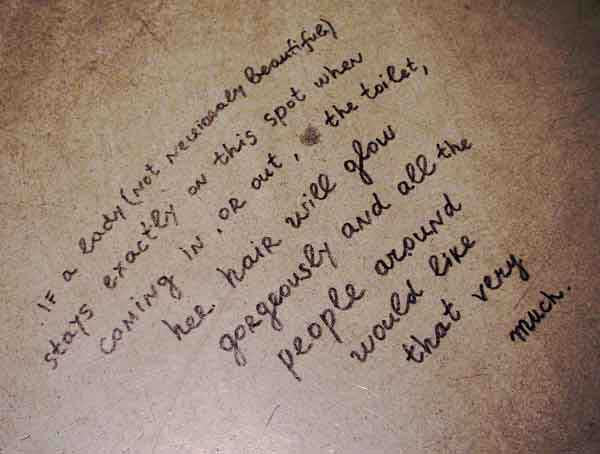 IF a lady (not necessaraly beautiful)
stays exactly on this spot when
coming in, or out, the toilet,
her hair will glow
gorgeously and all the
people around
would like
that very
much.